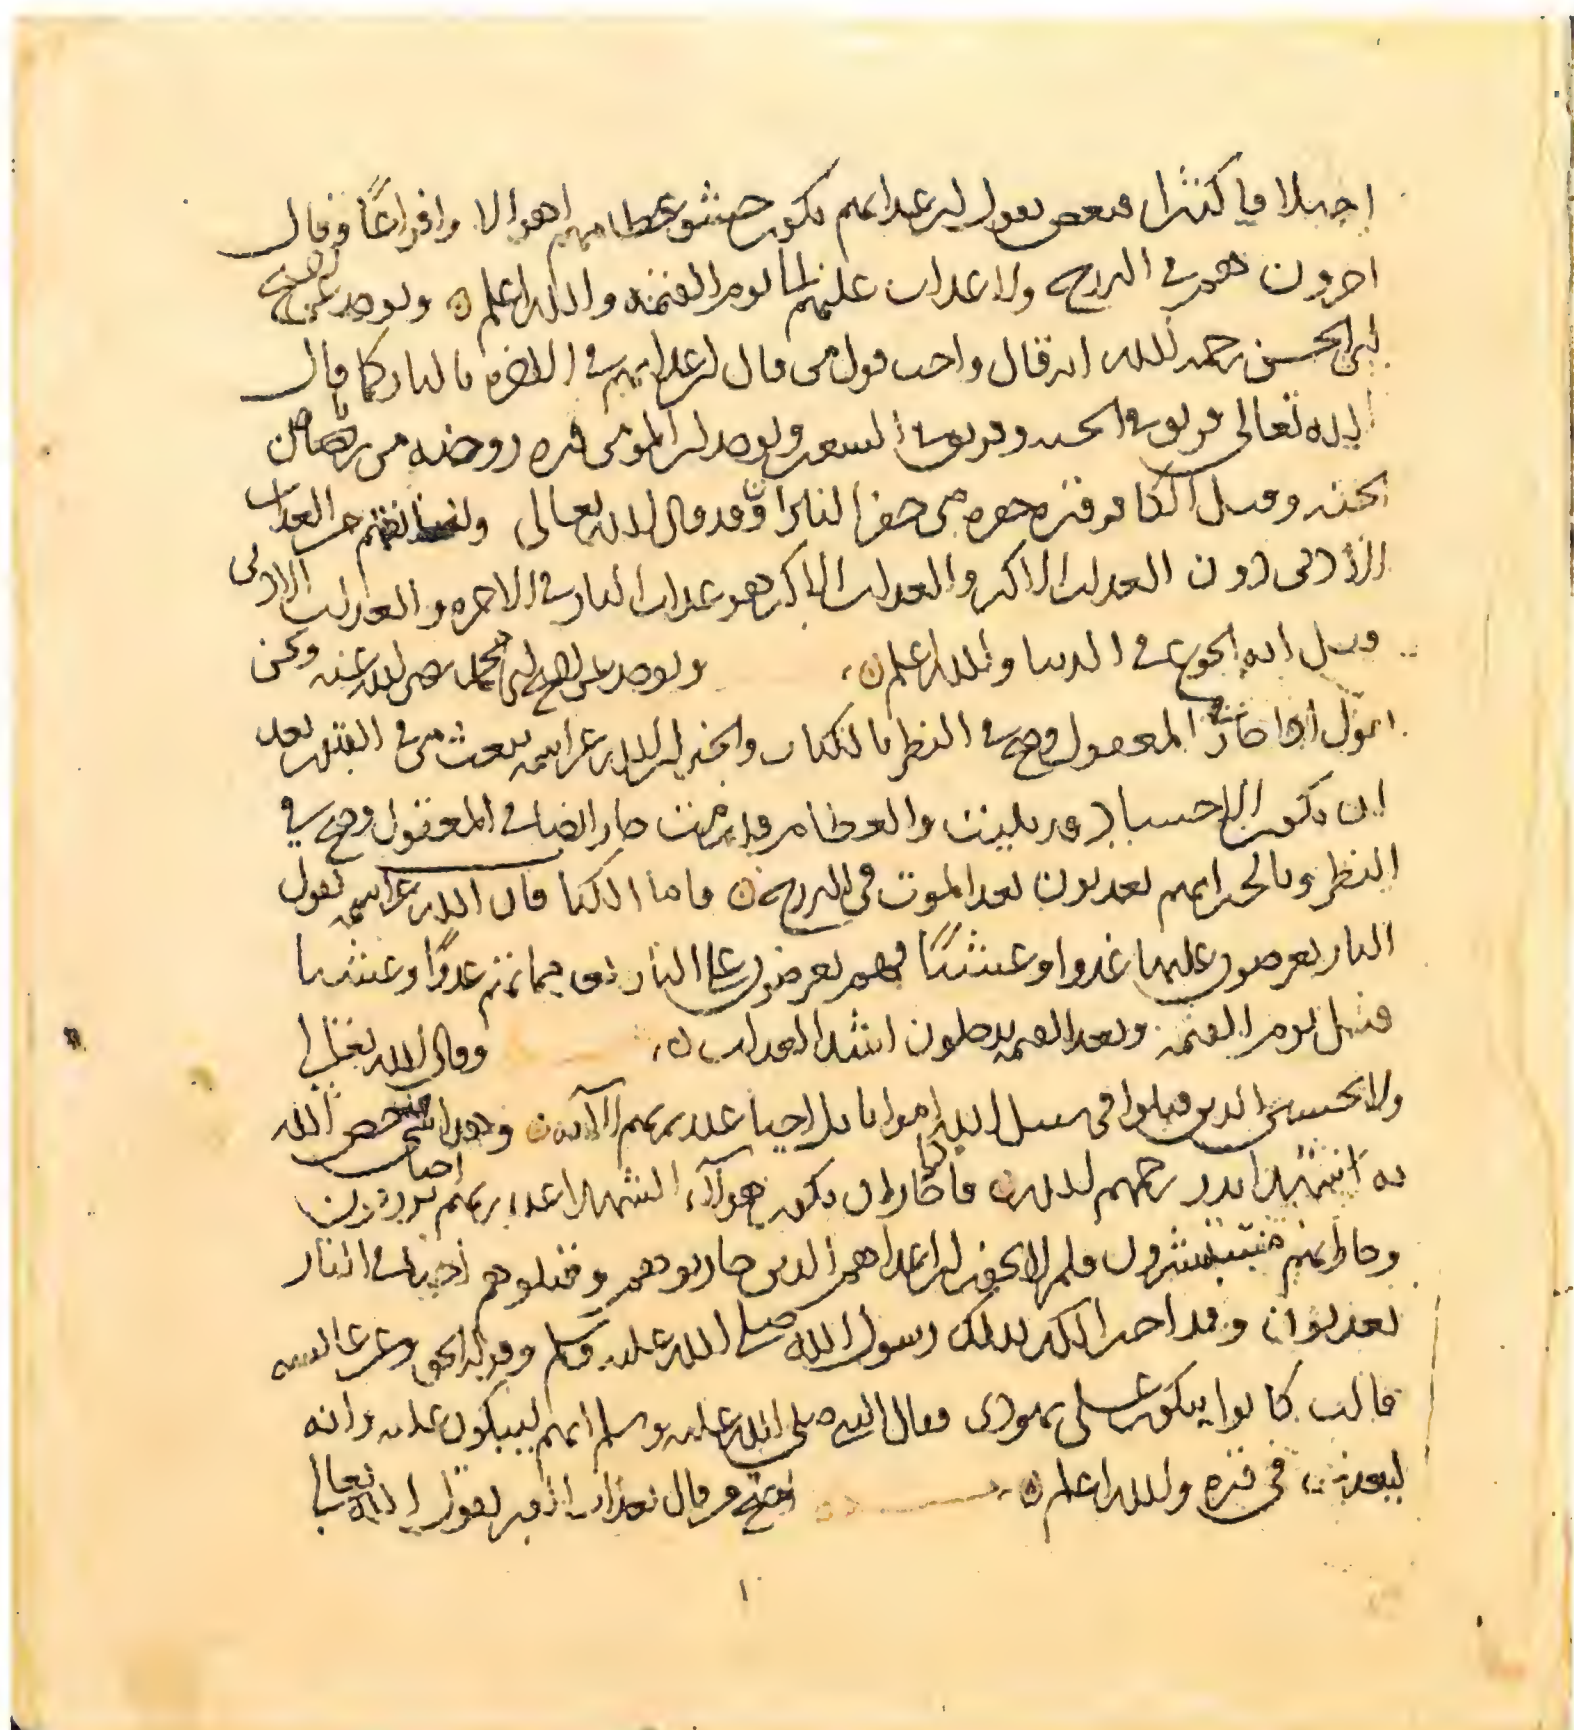 اختلافا كثيرا فبعض يقول ان عذابهم يكون حشو عظامهم اهوالا وافزاعا وقال
اخرون هم في البرزخ ولا عذاب عليهم الى يوم القيمة والله اعلم ويوجد عن الشيخ
ابي الحسن رحمه الله انه قال واحب قول من قال ان عذابهم في الاخرة بالنار كما قال
الله تعالى فريق في الجنة وفريق في السعير ويوجد ان المؤمن قبره روضة من رياض
الجنة وقيل الكافر قبره حفرة من حفر النار وقد قال الله تعالى ولنذيقنهم من العذاب
الأدنى دون العذاب الاكبر والعذاب الاكبر هو عذاب النار في الاخرة والعذاب الادنى
قيل انه الجوع في الدنيا والله اعلم ويوجد عن الشيخ ابي محمد رضي الله عنه ونحن
نقول اذا جاز في المعقول وصح في النظر بالكتاب والخبر ان الله عز اسمه يبعث من في القبور بعد
ان تكون الاجساد قد بليت والعظام قد رمت جاز ايضا في المعقول وصح في
النظر وبالخبر انهم يعذبون بعد الموت في البرزخ فاما الكتاب فان الله عز اسمه يقول
النار يعرضون عليها غدوا وعشيا فهم يعرضون على النار بعد مماتهم غدوا وعشيا
قبل يوم القيمة وبعد القيمة يدخلون اشد العذاب وقال الله تعالى
ولا تحسبن الذين قتلوا في سبيل الله امواتا بل احيا عند ربهم الآية وهذا شي خص الله
به شهدا بدر رحمهم الله فاذا جاز ان يكون هؤلآء الشهدا عند ربهم احيا يرزقون
وجاز انهم مستبشرون فلم لا يجوز ان اعداهم الذين حاربوهم وقتلوهم احيا في النار
يعذبون وقد اخبرنا بذلك رسول الله صلى الله عليه وسلم وقوله الحق وعن عائشة
قالت كانوا يبكون على يهودي فقال النبي صلى الله عليه وسلم انهم ليبكون عليه وانه
ليعذب في قبره والله اعلم احتج من قال بعذاب القبر بقول الله تعالى
١